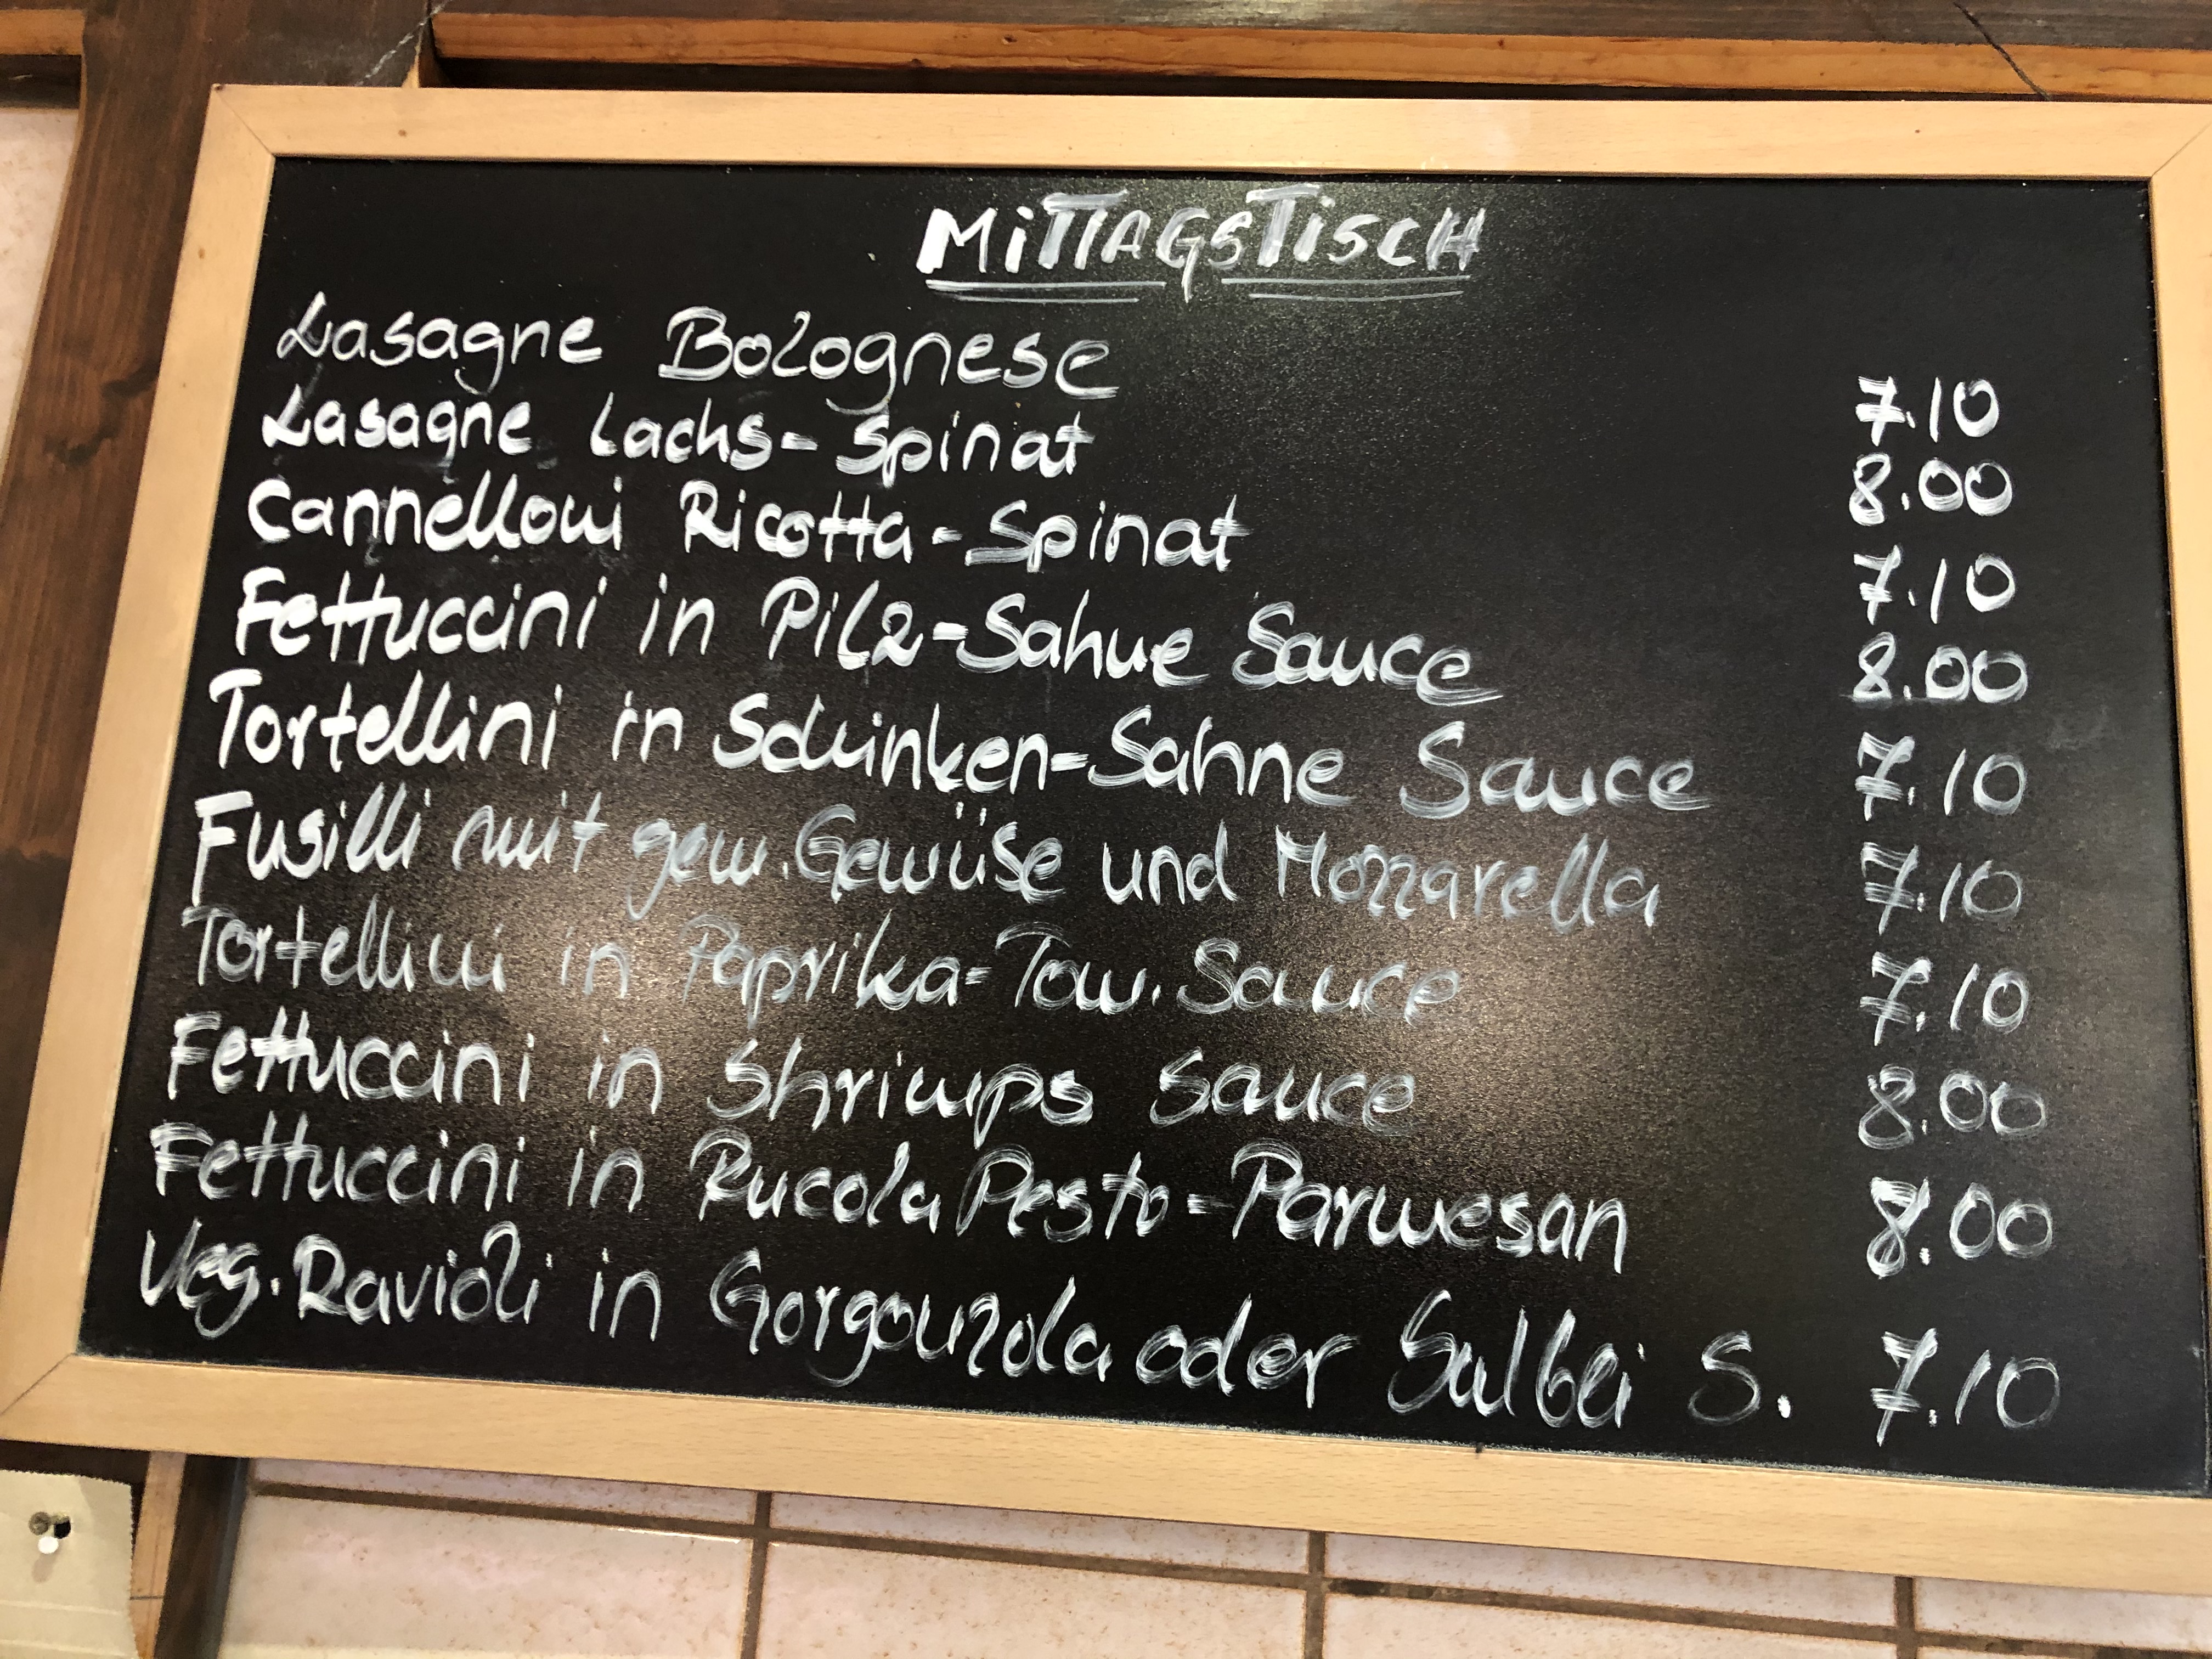 MiTTAGSTiSCH
Lasagne Bolognese 7.10
Lasagne Lachs-Spinat 8.00
Cannelloni Ricotta-Spinat 7.10
Fettuccini in Pilz-Sahne Sauce 8.00
Tortellini in Schinken-Sahne Sauce 7.10
Fusilli mit gem. Gemüse und Mozzarella 7.10
Tortellini in Paprika-Tom. Sauce 7.10
Fettuccini in Shrimps Sauce 8.00
Fettuccini in Rucola Pesto-Parmesan 8.00
Veg. Ravioli in Gorgonzola oder Salbei S. 7.10